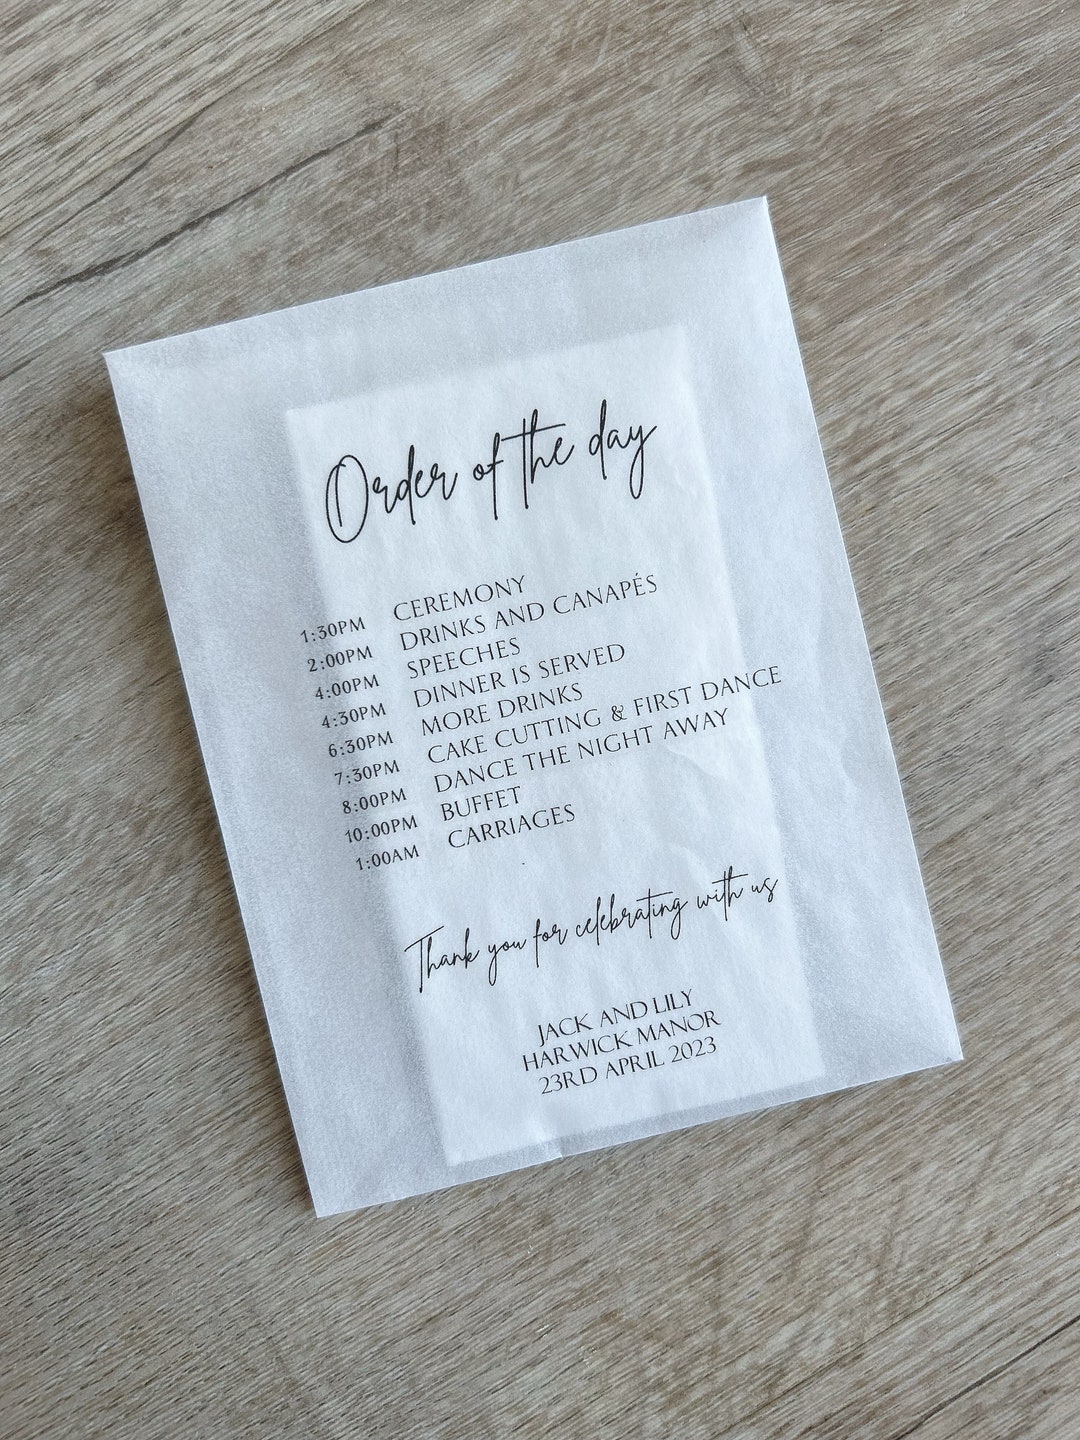 Order of the day
1:30PM CEREMONY
2:00PM DRINKS AND CANAPÉS
4:00PM SPEECHES
4:30PM DINNER IS SERVED
6:30PM MORE DRINKS
7:30PM CAKE CUTTING & FIRST DANCE
8:00PM DANCE THE NIGHT AWAY
10:00PM BUFFET
1:00AM CARRIAGES
Thank you for celebrating with us
JACK AND LILY
HARWICK MANOR
23RD APRIL 2023